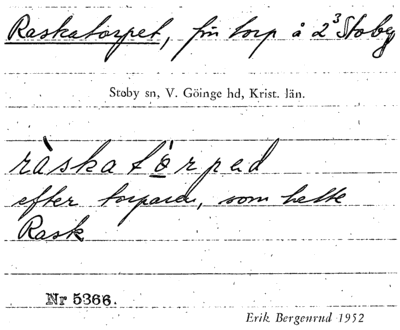 Raskatorpet, frn torp å 2³ Stoby
Stoby sn, V. Göinge hd, Krist. län.
ràskatò̱rpəd
efter torparen, som hette
Rask
Nr 5366.
Erik Bergenrud 1952